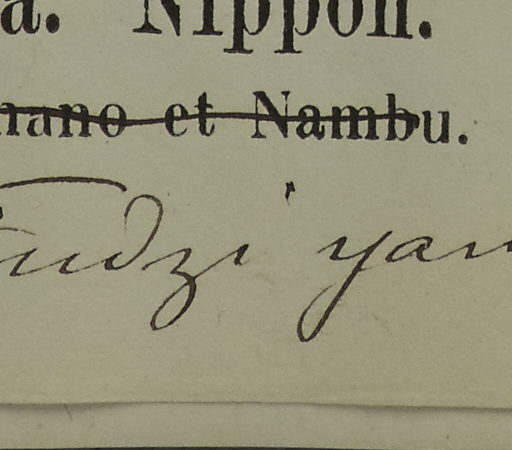 a. Nippon.
nano et Nambu.
Fudzi yam